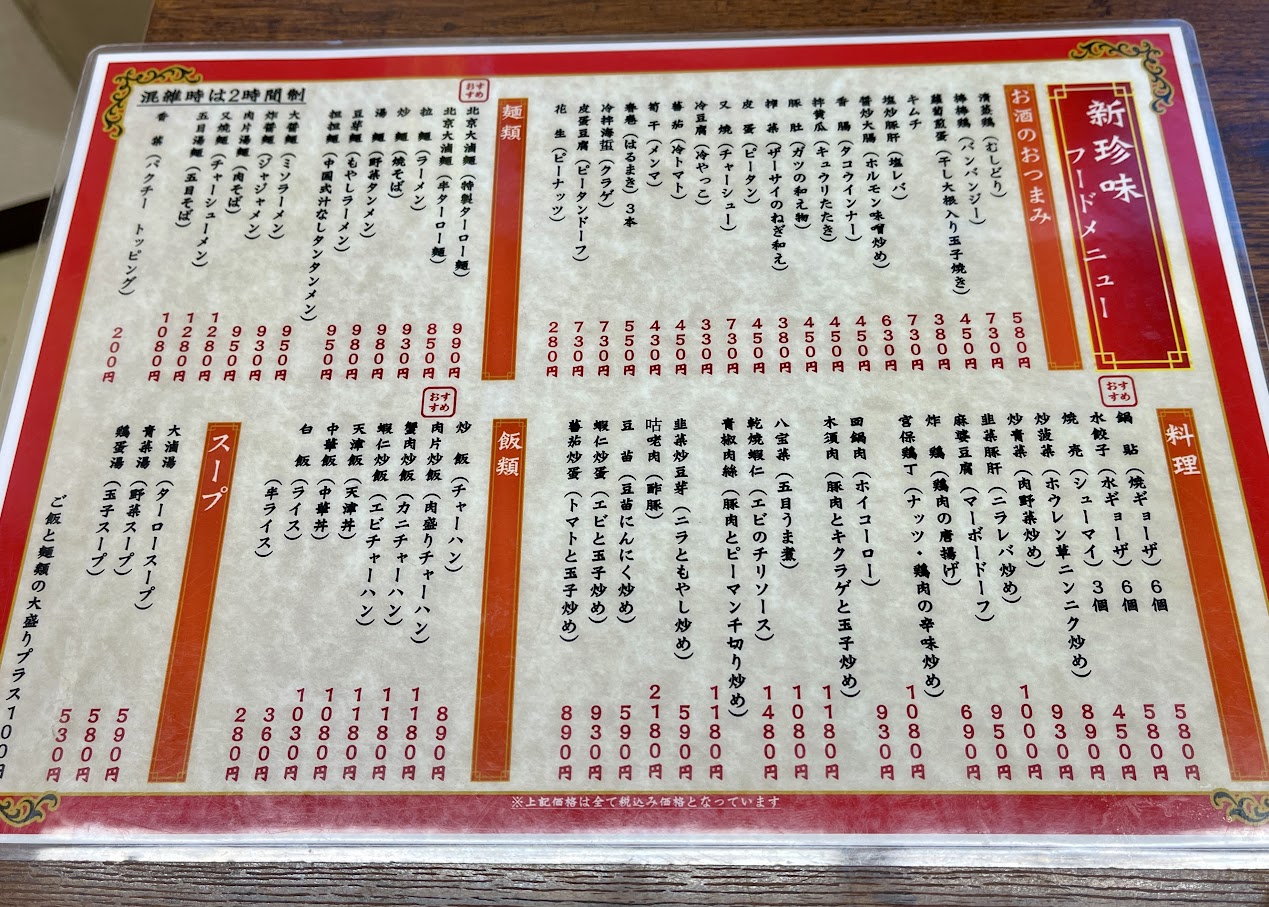 新珍味
フードメニュー
お酒のおつまみ
清蒸鶏(むしどり) 580円
棒棒鶏(バンバンジー) 730円
蘿蔔煎蛋(干し大根入り玉子焼き) 450円
キムチ 380円
塩炒豚肝(塩レバ) 730円
醤炒大腸(ホルモン味噌炒め) 630円
香 腸(タコウインナー) 450円
拌黄瓜(キュウリたたき) 450円
豚 肚(ガツの和え物) 550円
搾 菜(ザーサイのねぎ和え) 380円
皮 蛋(ピータン) 450円
叉 焼(チャーシュー) 730円
冷豆腐(冷やっこ) 330円
蕃 茄(冷トマト) 450円
筍 干(メンマ) 430円
春巻(はるまき)3本 550円
冷拌海蜇(クラゲ) 730円
皮蛋豆腐(ピータンドーフ) 730円
花 生(ピーナッツ) 280円
麺類
おすすめ
北京大滷麺(特製ターロー麺) 990円
北京大滷麺(半ターロー麺) 850円
拉 麺(ラーメン) 930円
炒 麺(焼そば) 980円
湯 麺(野菜タンメン) 980円
豆芽麺(もやしラーメン) 950円
担担麺(中国式汁なしタンタンメン) 950円
大醤麺(ミソラーメン) 930円
炸醤麺(ジャジャメン) 950円
肉片湯麺(肉そば) 1280円
叉焼麺(チャーシューメン) 1280円
五目湯麺(五目そば) 1080円
香 菜(パクチー トッピング) 200円
混雑時は2時間制
料理
おすすめ
鍋 貼(焼ギョーザ)6個 580円
水餃子(水ギョーザ)6個 580円
焼 売(シューマイ)3個 450円
炒菠菜(ホウレン草ニンニク炒め) 890円
炒青菜(肉野菜炒め) 930円
韭菜豚肝(ニラレバ炒め) 1000円
麻婆豆腐(マーボードーフ) 950円
炸 鶏(鶏肉の唐揚げ) 690円
宮保鶏丁(ナッツ・鶏肉の辛味炒め) 1080円
田鍋肉(ホイコーロー) 930円
木須肉(豚肉とキクラゲと玉子炒め) 1180円
八宝菜(五目うま煮) 1080円
乾焼蝦仁(エビのチリソース) 1480円
青椒肉絲(豚肉とピーマン千切り炒め) 1180円
韭菜炒豆芽(ニラともやし炒め) 590円
咕咾肉(酢豚) 2180円
豆 苗(豆苗にんにく炒め) 590円
蝦仁炒蛋(エビと玉子炒め) 930円
蕃茄炒蛋(トマトと玉子炒め) 890円
飯類
炒 飯(チャーハン) 890円
おすすめ
肉片炒飯(肉盛りチャーハン) 1180円
蟹肉炒飯(カニチャーハン) 1180円
蝦仁炒飯(エビチャーハン) 1180円
天津飯(天津丼) 1080円
中華飯(中華丼) 1030円
白 飯(ライス) 360円
(半ライス) 280円
スープ
大滷湯(ターロースープ) 590円
青菜湯(野菜スープ) 580円
鶏蛋湯(玉子スープ) 530円
ご飯と麺類の大盛りプラス100円
※上記価格は全て税込み価格となっています